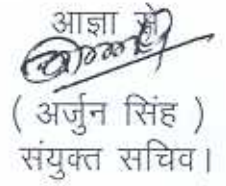 आज्ञा से
( अर्जुन सिंह )
संयुक्त सचिव।